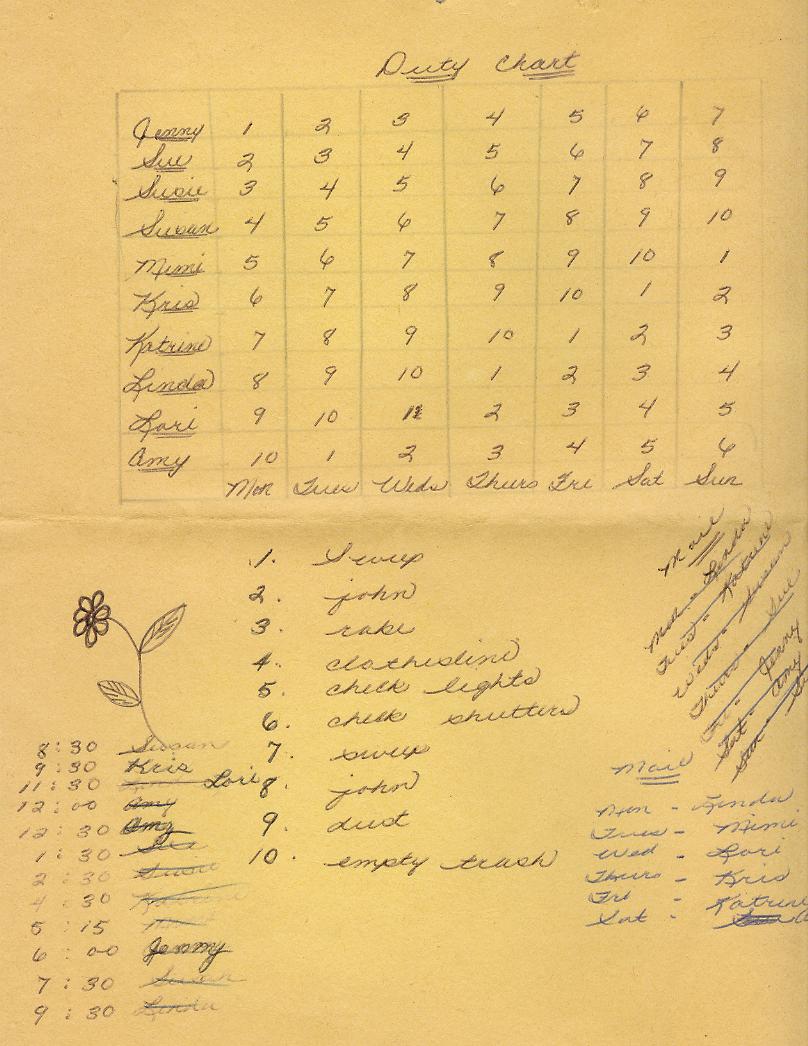 Duty Chart
Jenny 1 2 3 4 5 6 7
Sue 2 3 4 5 6 7 8
Susie 3 4 5 6 7 8 9
Susan 4 5 6 7 8 9 10
Mimi 5 6 7 8 9 10 1
Kris 6 7 8 9 10 1 2
Katrine 7 8 9 10 1 2 3
Linda 8 9 10 1 2 3 4
Lori 9 10 1 2 3 4 5
Amy 10 1 2 3 4 5 6
Mon Tues Weds Thurs Fri Sat Sun
1. Sweep
2. john
3. rake
4. clothesline
5. check lights
6. check shutters
7. sweep
8. john
9. dust
10. empty trash
Mail
Mon - Linda
Tues - Katrine
Weds - Susan
Thurs - Sue
Fri - Jenny
Sat - Amy
Sun -
8:30 Susan
9:30 Kris
11:30 Lori
12:00 Amy
12:30 Amy
1:30 Sue
2:30 Susie
4:30 Katrine
5:15
6:00 Jenny
7:30 Susan
9:30 Linda
Mail
Mon - Linda
Tues - Mimi
Wed - Lori
Thurs - Kris
Fri - Katrine
Sat -